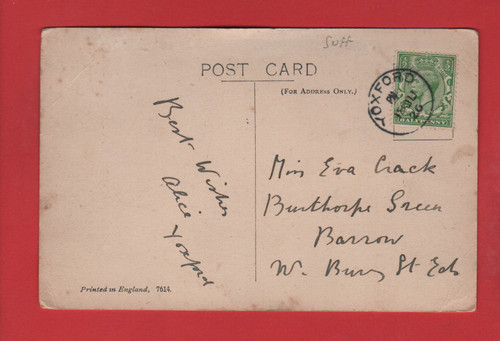 Suff
POST CARD
(FOR ADDRESS ONLY.)
YOXFORD
HALFPENNY
Best Wishes
Alice Yoxford
Miss Eva Crack
Burthorpe Green
Barrow
W. Bury St Eds
Printed in England, 7614.